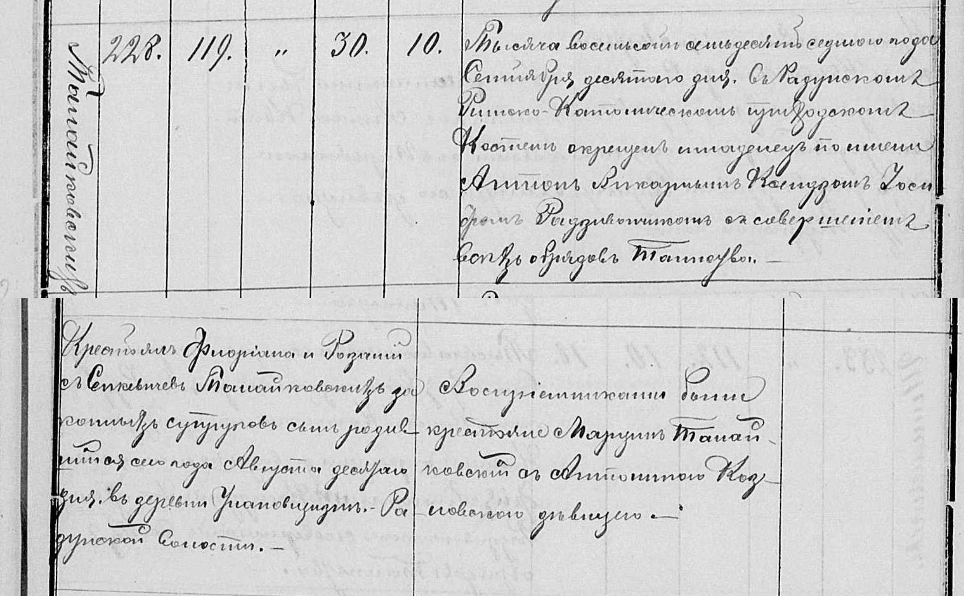 Талайковскихъ
228. 119. " 30. 10.
Тысяча восемьсотъ семьдесятъ седьмого года
Сентября десятого дня. въ Радунскомъ
Римско-Католическомъ приходскомъ
Костелѣ окрещенъ младенецъ по имени
Антонъ Викарнымъ Ксендзомъ
Радзивономъ съ совершеніемъ
всѣхъ обрядовъ Таинства. —
Крестьянъ Флоріана и Розаліи
съ Талайковскихъ за
конныхъ супруговъ сынъ родив-
шійся сего года Августа десятаго
дня. въ деревни - Ра
дунской волости. —
Воспріемниками были
крестьяне Марцинъ Талай-
ковскій съ Антониною Коз
ловскою дѣвицею. —